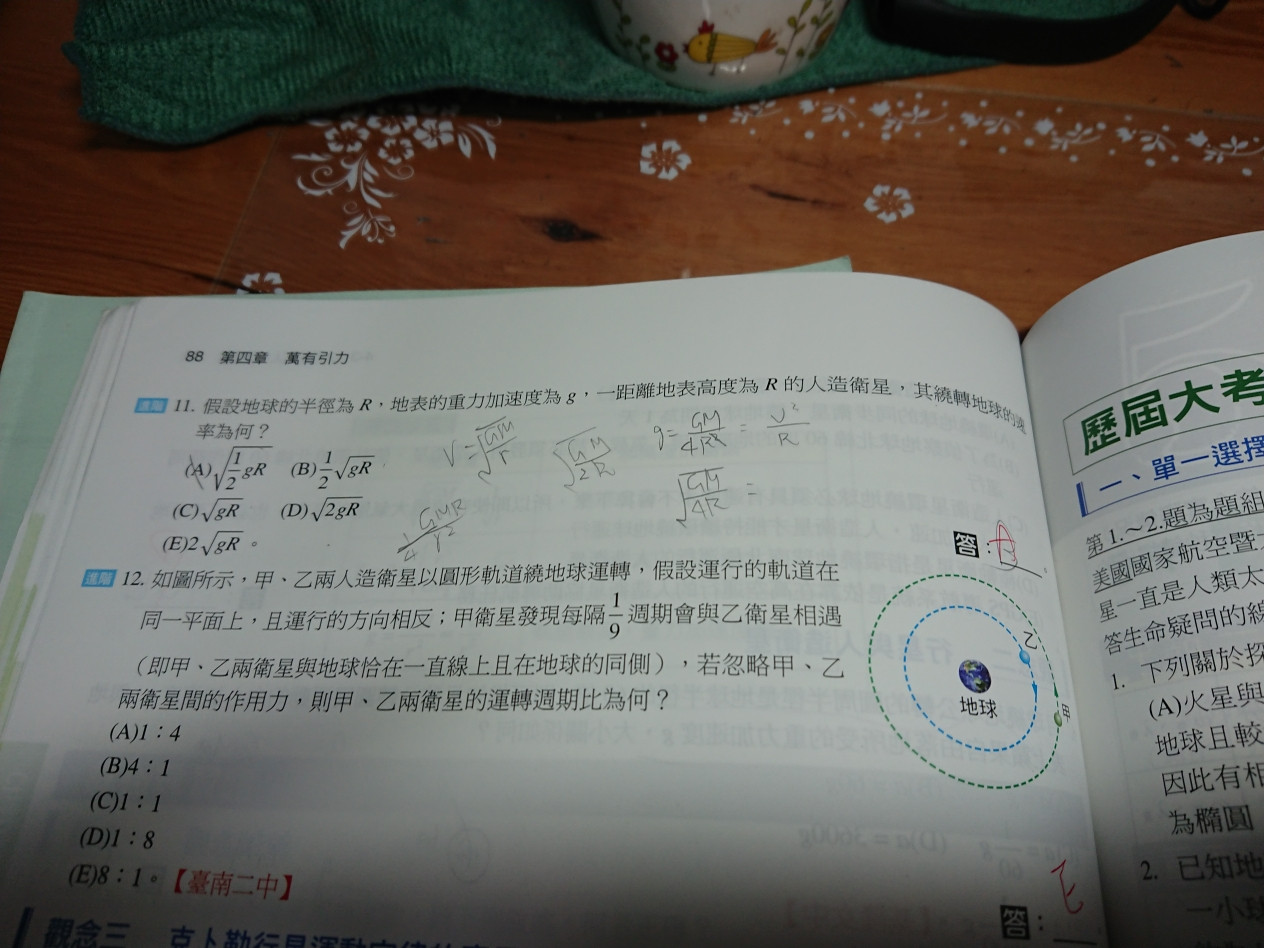 88 第四章 萬有引力
進階 11. 假設地球的半徑為 R，地表的重力加速度為 g，一距離地表高度為 R 的人造衛星，其繞轉地球的速
率為何？
(A)√(1/2 gR) (B)1/2√gR
(C)√gR (D)√2gR
(E)2√gR。
V=√(GM/r)
√(GM/2R)
g=GM/4R²=V²/R
√(GM/4R)=
答：
進階 12. 如圖所示，甲、乙兩人造衛星以圓形軌道繞地球運轉，假設運行的軌道在
同一平面上，且運行的方向相反；甲衛星發現每隔1/9週期會與乙衛星相遇
（即甲、乙兩衛星與地球恰在一直線上且在地球的同側），若忽略甲、乙
兩衛星間的作用力，則甲、乙兩衛星的運轉週期比為何？
(A)1：4
(B)4：1
(C)1：1
(D)1：8
(E)8：1。【臺南二中】
乙
地球
甲
答：E
觀念三
歷屆大考
一、單一選擇
第1.～2.題為題組
美國國家航空暨
星一直是人類太
答生命疑問的線
1. 下列關於探
(A)火星與
地球且較
因此有相
為橢圓
2. 已知地
一小球